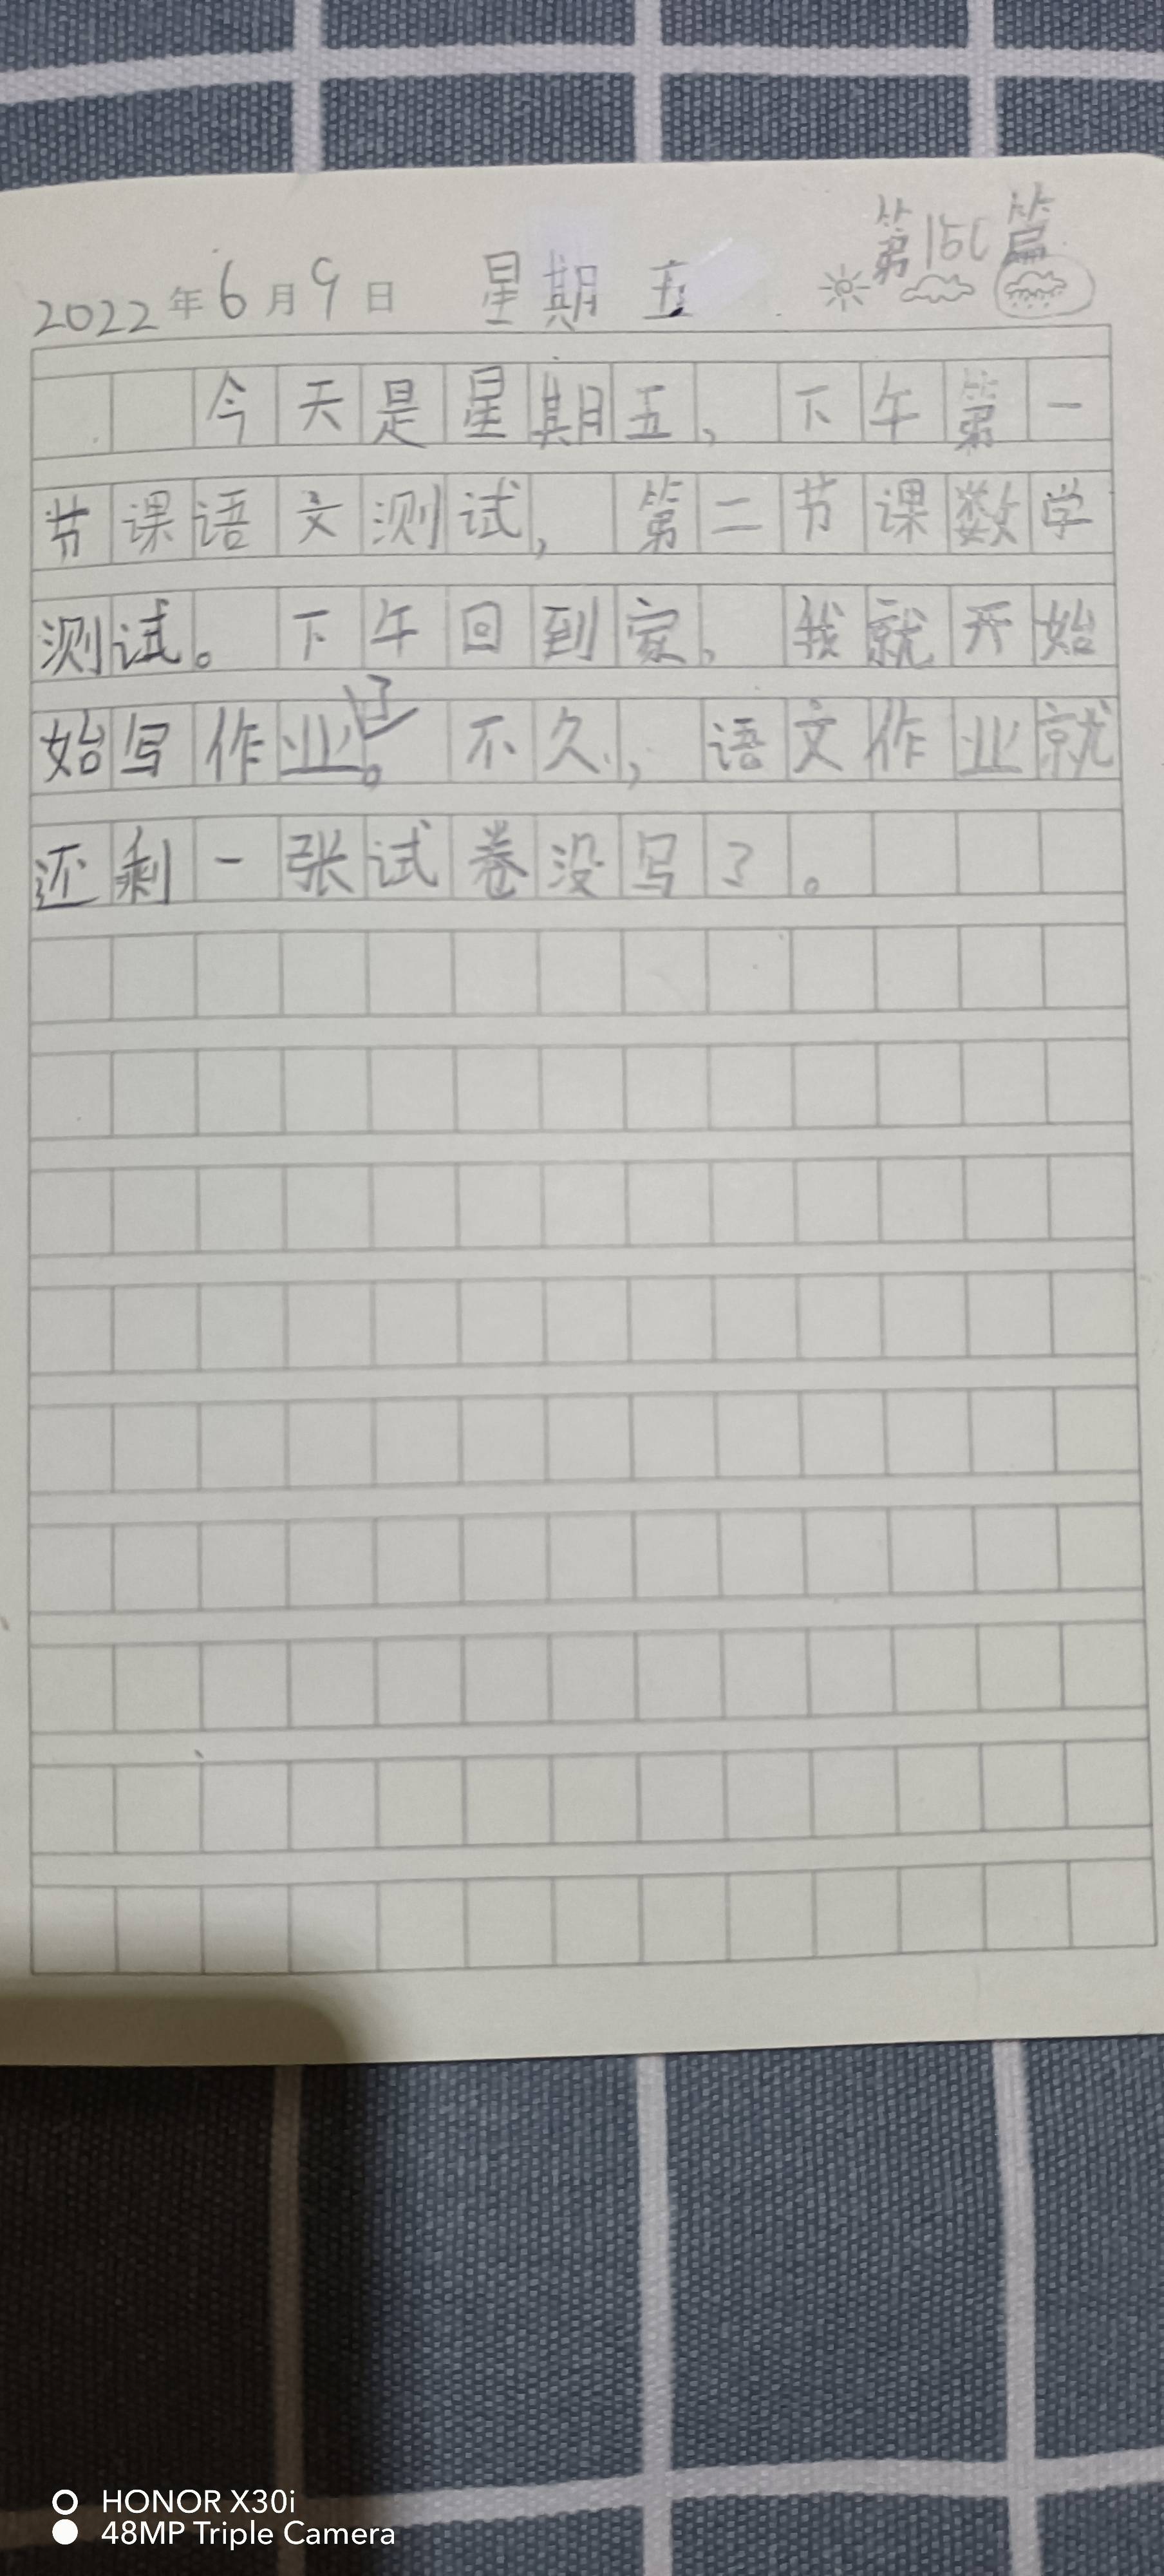 第150篇
2022年6月9日 星期五
今天是星期五，下午第一
节课语文测试，第二节课数学
测试。下午回到家，我就开始
始写作业了。不久，语文作业就
还剩一张试卷没写了。
HONOR X30i
48MP Triple Camera